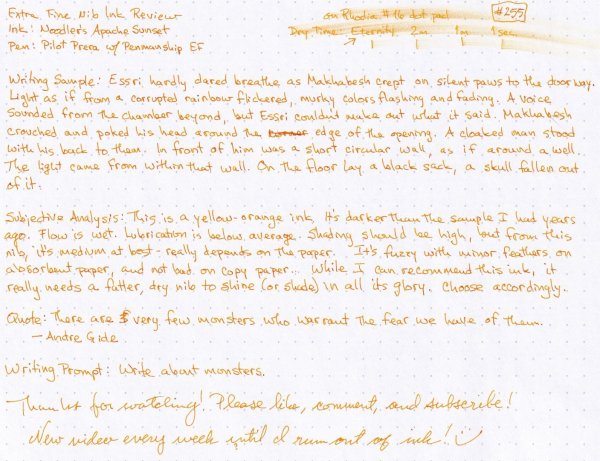 Extra Fine Nib Ink Review
on Rhodia #16 dot pad
#255
Ink: Noodler's Apache Sunset
Dry Time: Eternity 2m 1m 1sec
Pen: Pilot Prera w/ Penmanship EF
Writing Sample: Essri hardly dared breathe as Makhabesh crept on silent paws to the doorway.
Light as if from a corrupted rainbow flickered, murky colors flashing and fading. A voice
sounded from the chamber beyond, but Essri couldn't make out what it said. Makhabesh
crouched and poked his head around the corner edge of the opening. A cloaked man stood
with his back to them. In front of him was a short circular wall, as if around a well.
The light came from within that wall. On the floor lay a black sack, a skull fallen out
of it.
Subjective Analysis: This is a yellow-orange ink. It's darker than the sample I had years
ago. Flow is wet. Lubrication is below average. Shading should be high, but from this
nib, it's medium at best - really depends on the paper. It's fuzzy with minor feathers on
absorbent paper, and not bad on copy paper... While I can recommend this ink, it
really needs a fatter, dry nib to shine (or shade) in all its glory. Choose accordingly.
Quote: There are very few monsters who warrant the fear we have of them.
- Andre Gide
Writing Prompt: Write about monsters.
Thanks for watching! Please like, comment, and subscribe!
New video every week until I run out of ink!